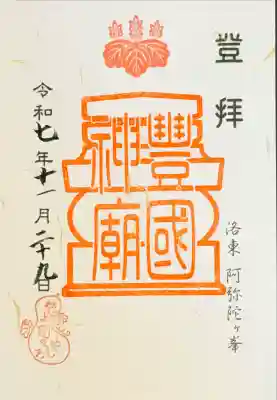 登拝
洛東 阿弥陀ヶ峯
豊國
神廟
令和七年十一月二十九日